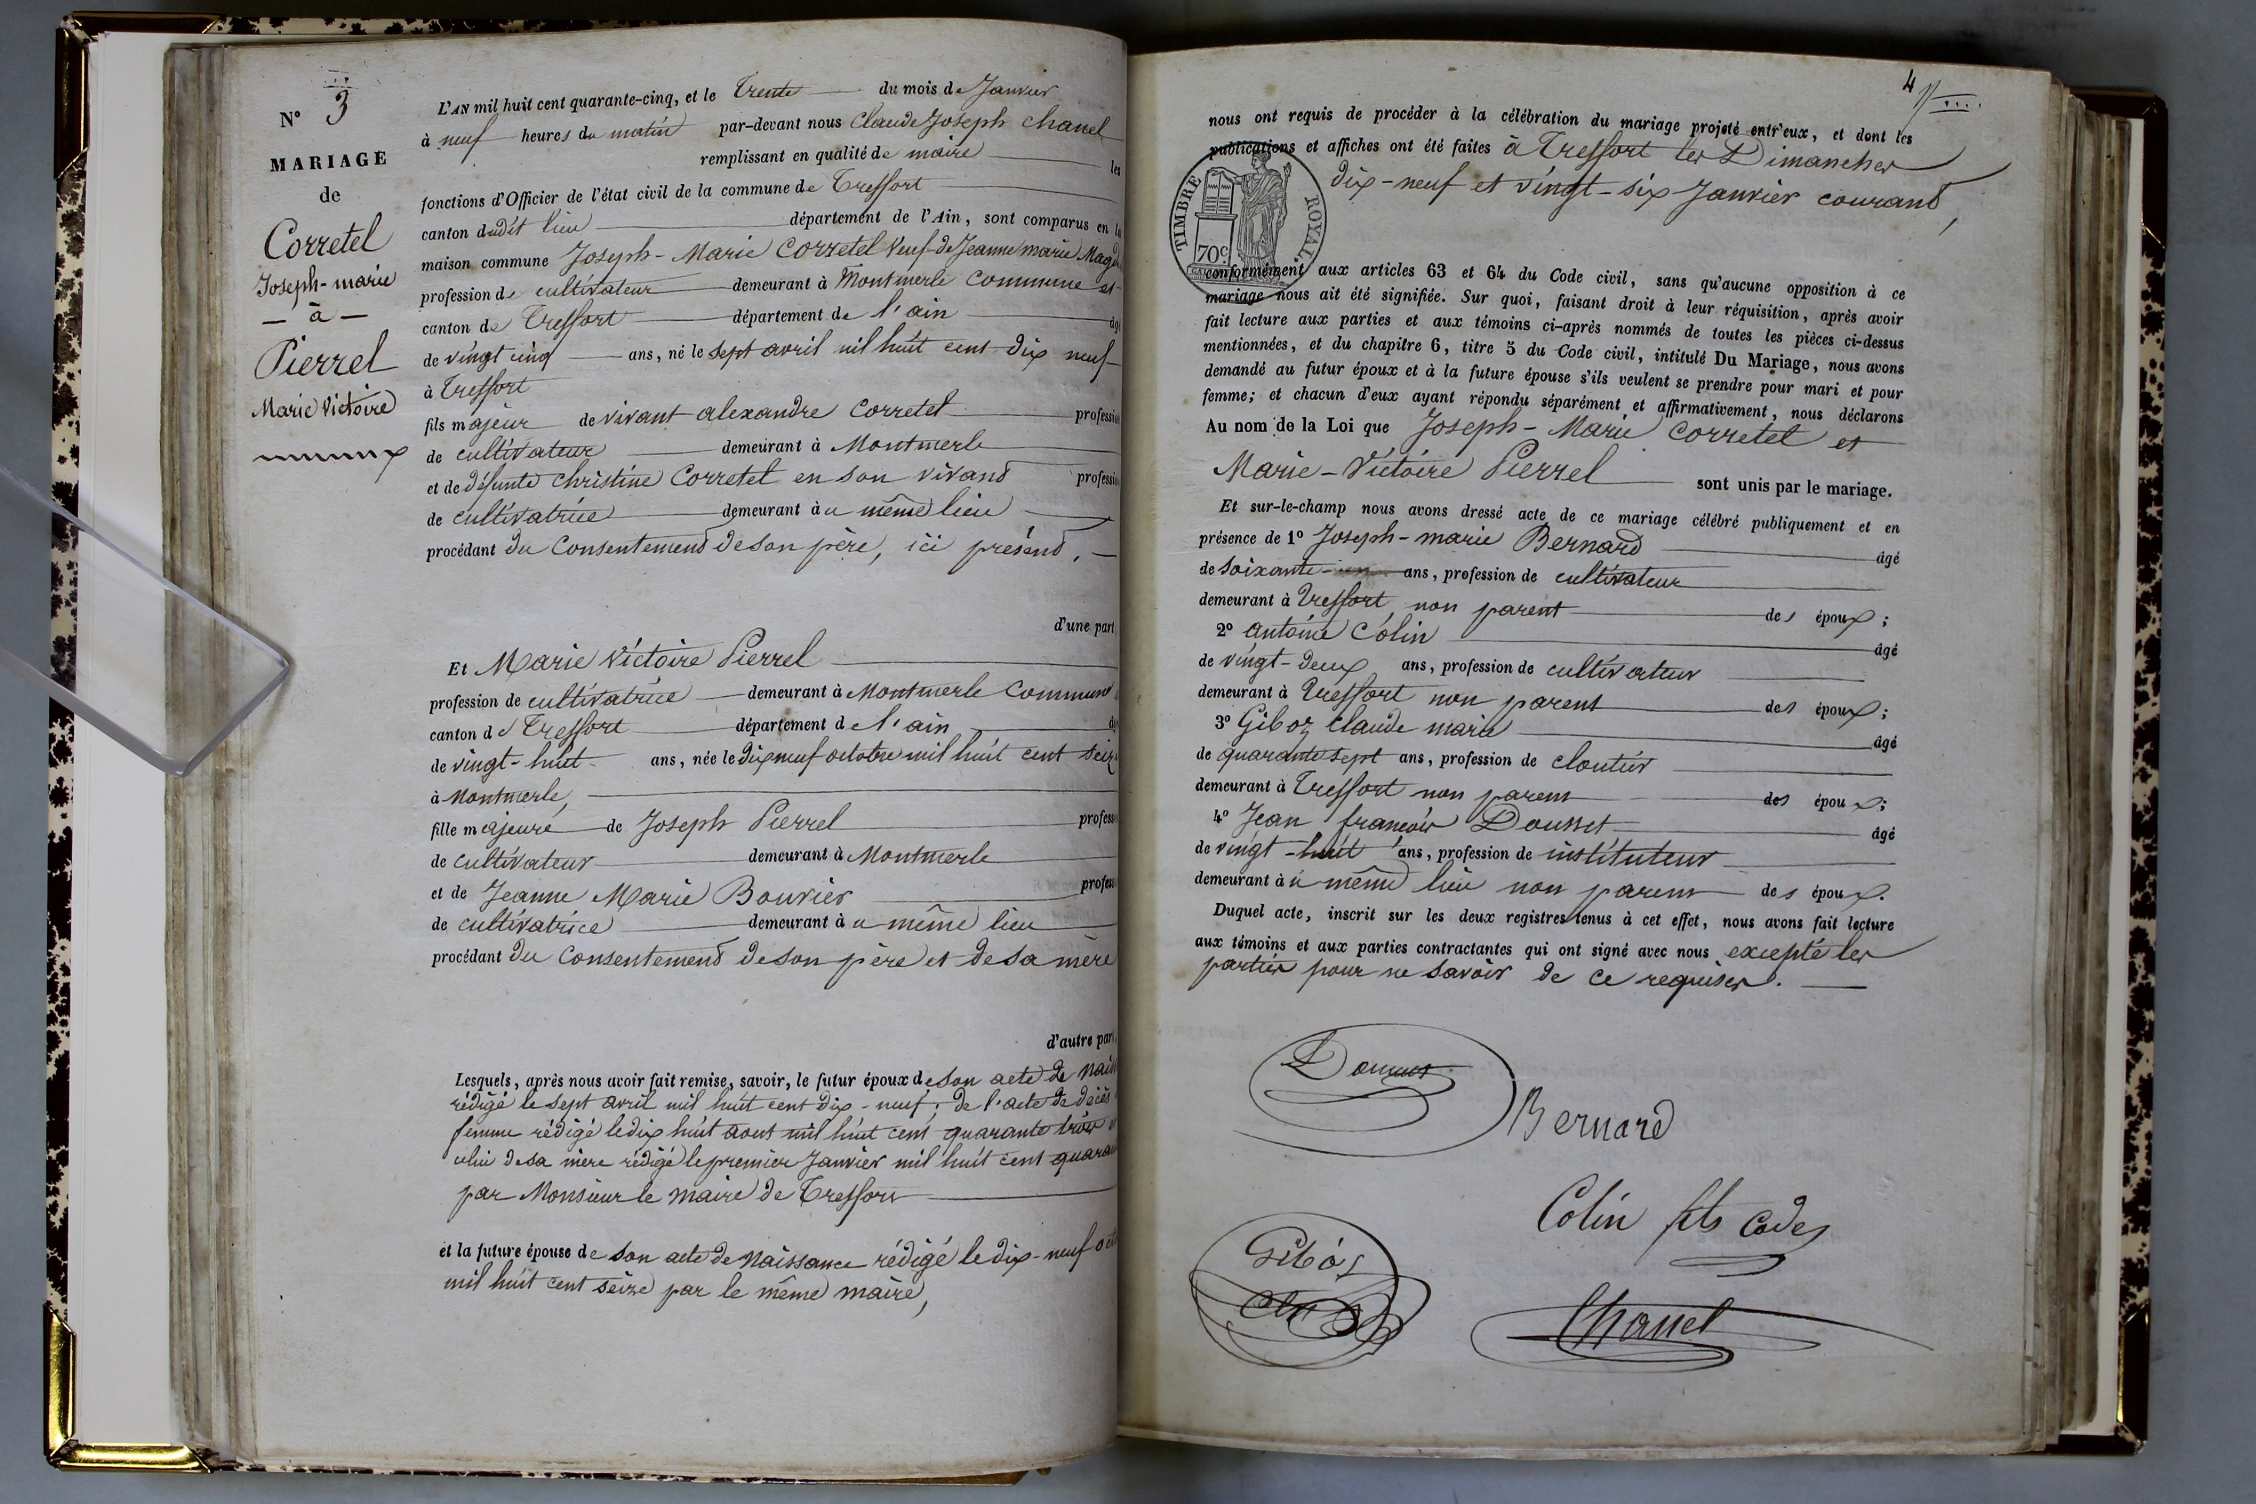 N° 3
MARIAGE
de
Corretel
Joseph-marie
— à —
Pierrel
Marie Victoire
L'AN mil huit cent quarante-cinq, et le Trente du mois de Janvier
à neuf heures du matin par-devant nous Claude Joseph Chanel
remplissant en qualité de maire les
fonctions d'Officier de l'état civil de la commune de Treffort
canton dudit lieu département de l'Ain, sont comparus en la
maison commune Joseph-Marie Corretel Veuf de Jeanne marie
profession de cultivateur demeurant à Montmerle Commune et
canton de Treffort département de l'ain âgé
de vingt cinq ans, né le sept avril mil huit cent dix neuf
à Treffort
fils majeur de vivant alexandre Corretel profession
de cultivateur demeurant à Montmerle
et de défunte Christine Corretel en son vivant profession
de cultivatrice demeurant au même lieu
procédant du Consentement de son père, ici présent.
d'une part
Et Marie Victoire Pierrel
profession de cultivatrice demeurant à Montmerle Commune
canton de Treffort département de l'ain
de vingt-huit ans, née le dix neuf octobre mil huit cent seize
à Montmerle,
fille majeure de Joseph Pierrel profession
de cultivateur demeurant à Montmerle
et de Jeanne Marie Bouvier profession
de cultivatrice demeurant au même lieu
procédant du Consentement de son père et de sa mère
d'autre part
Lesquels, après nous avoir fait remise, savoir, le futur époux de son acte de
rédigé le sept avril mil huit cent dix-neuf; de l'acte de décès
femme rédigé le dix huit aout mil huit cent quarante trois
celui de sa mère rédigé le premier Janvier mil huit cent
par Monsieur le maire de Treffort
et la future épouse de son acte de Naissance rédigé le dix-neuf
mil huit cent seize par le même maire,
4
nous ont requis de procéder à la célébration du mariage projeté entr'eux, et dont les
publications et affiches ont été faites à Treffort les Dimanches
dix-neuf et vingt-six Janvier courant,
TIMBRE ROYAL
70c
conformément aux articles 63 et 64 du Code civil, sans qu'aucune opposition à ce
mariage nous ait été signifiée. Sur quoi, faisant droit à leur réquisition, après avoir
fait lecture aux parties et aux témoins ci-après nommés de toutes les pièces ci-dessus
mentionnées, et du chapitre 6, titre 5 du Code civil, intitulé Du Mariage, nous avons
demandé au futur époux et à la future épouse s'ils veulent se prendre pour mari et pour
femme; et chacun d'eux ayant répondu séparément et affirmativement, nous déclarons
Au nom de la Loi que Joseph-Marie Corretel et
Marie-Victoire Pierrel sont unis par le mariage.
Et sur-le-champ nous avons dressé acte de ce mariage célébré publiquement et en
présence de 1° Joseph-marie Bernard âgé
de soixante-un ans, profession de cultivateur
demeurant à Treffort non parent des époux;
2° antoine Colin âgé
de vingt-deux ans, profession de cultivateur
demeurant à Treffort non parent des époux;
3° Giboz Claude marie âgé
de quarante sept ans, profession de cloutier
demeurant à Treffort non parent des époux;
4° Jean françois Dousset âgé
de vingt-huit ans, profession de instituteur
demeurant au même lieu non parent des époux.
Duquel acte, inscrit sur les deux registres tenus à cet effet, nous avons fait lecture
aux témoins et aux parties contractantes qui ont signé avec nous excepté les
parties pour ne savoir de ce requises.
Bernard
Colin fils
Giboz
Chanel